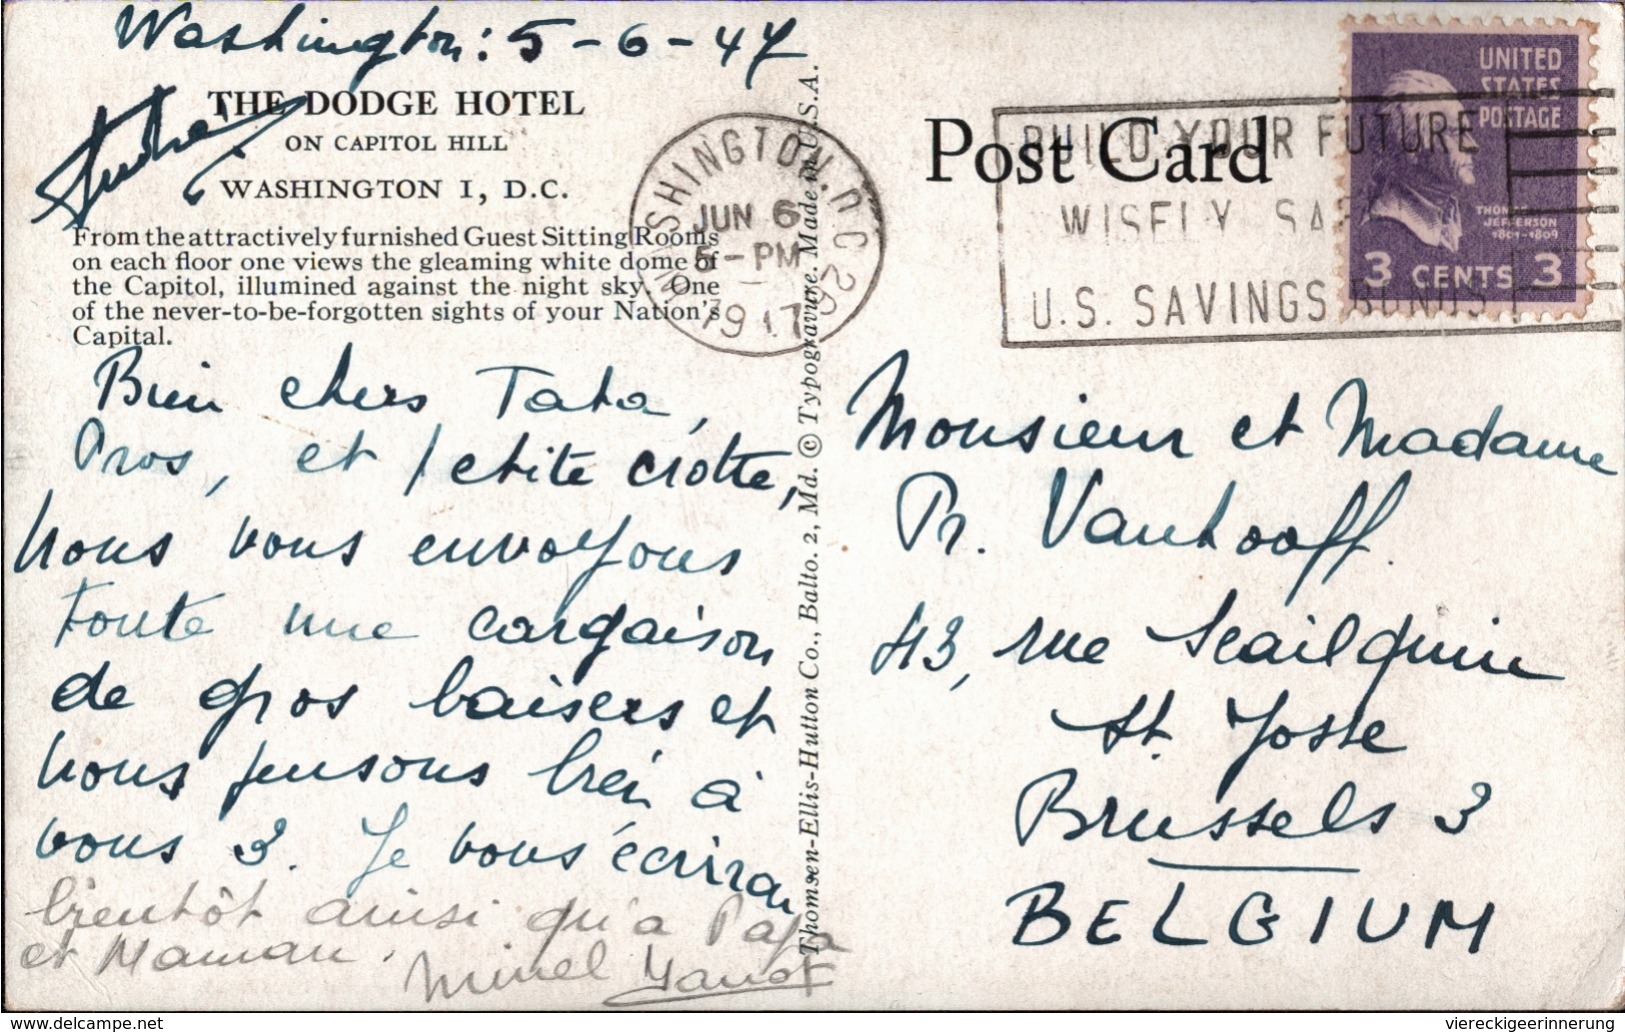 Washington: 5-6-47
THE DODGE HOTEL
ON CAPITOL HILL
WASHINGTON 1, D.C.
From the attractively furnished Guest Sitting Rooms
on each floor one views the gleaming white dome of
the Capitol, illumined against the night sky. One
of the never-to-be-forgotten sights of your Nation's
Capital.
Bien chers Tata,
Pros, et petite crotte,
nous vous envoyons
toute une cargaison
de gros baisers et
nous pensons bien à
vous 3. Je vous écrirai
bientôt ainsi qu'à Papa
et Maman.
Thomsen-Ellis-Hutton Co., Balto. 2, Md. © Typogravure. Made in U.S.A.
WASHINGTON, D.C.
JUN 6
5-PM
1947
Post Card
BUILD YOUR FUTURE
WISELY SAFELY
U.S. SAVINGS BONDS
UNITED
STATES
POSTAGE
THOMAS
JEFFERSON
1801-1809
3 CENTS 3
Monsieur et Madame
Pr. Vanhooff
43, rue Scailquin
St. Josse
Brussels 3
BELGIUM
viereckigeerinnerung